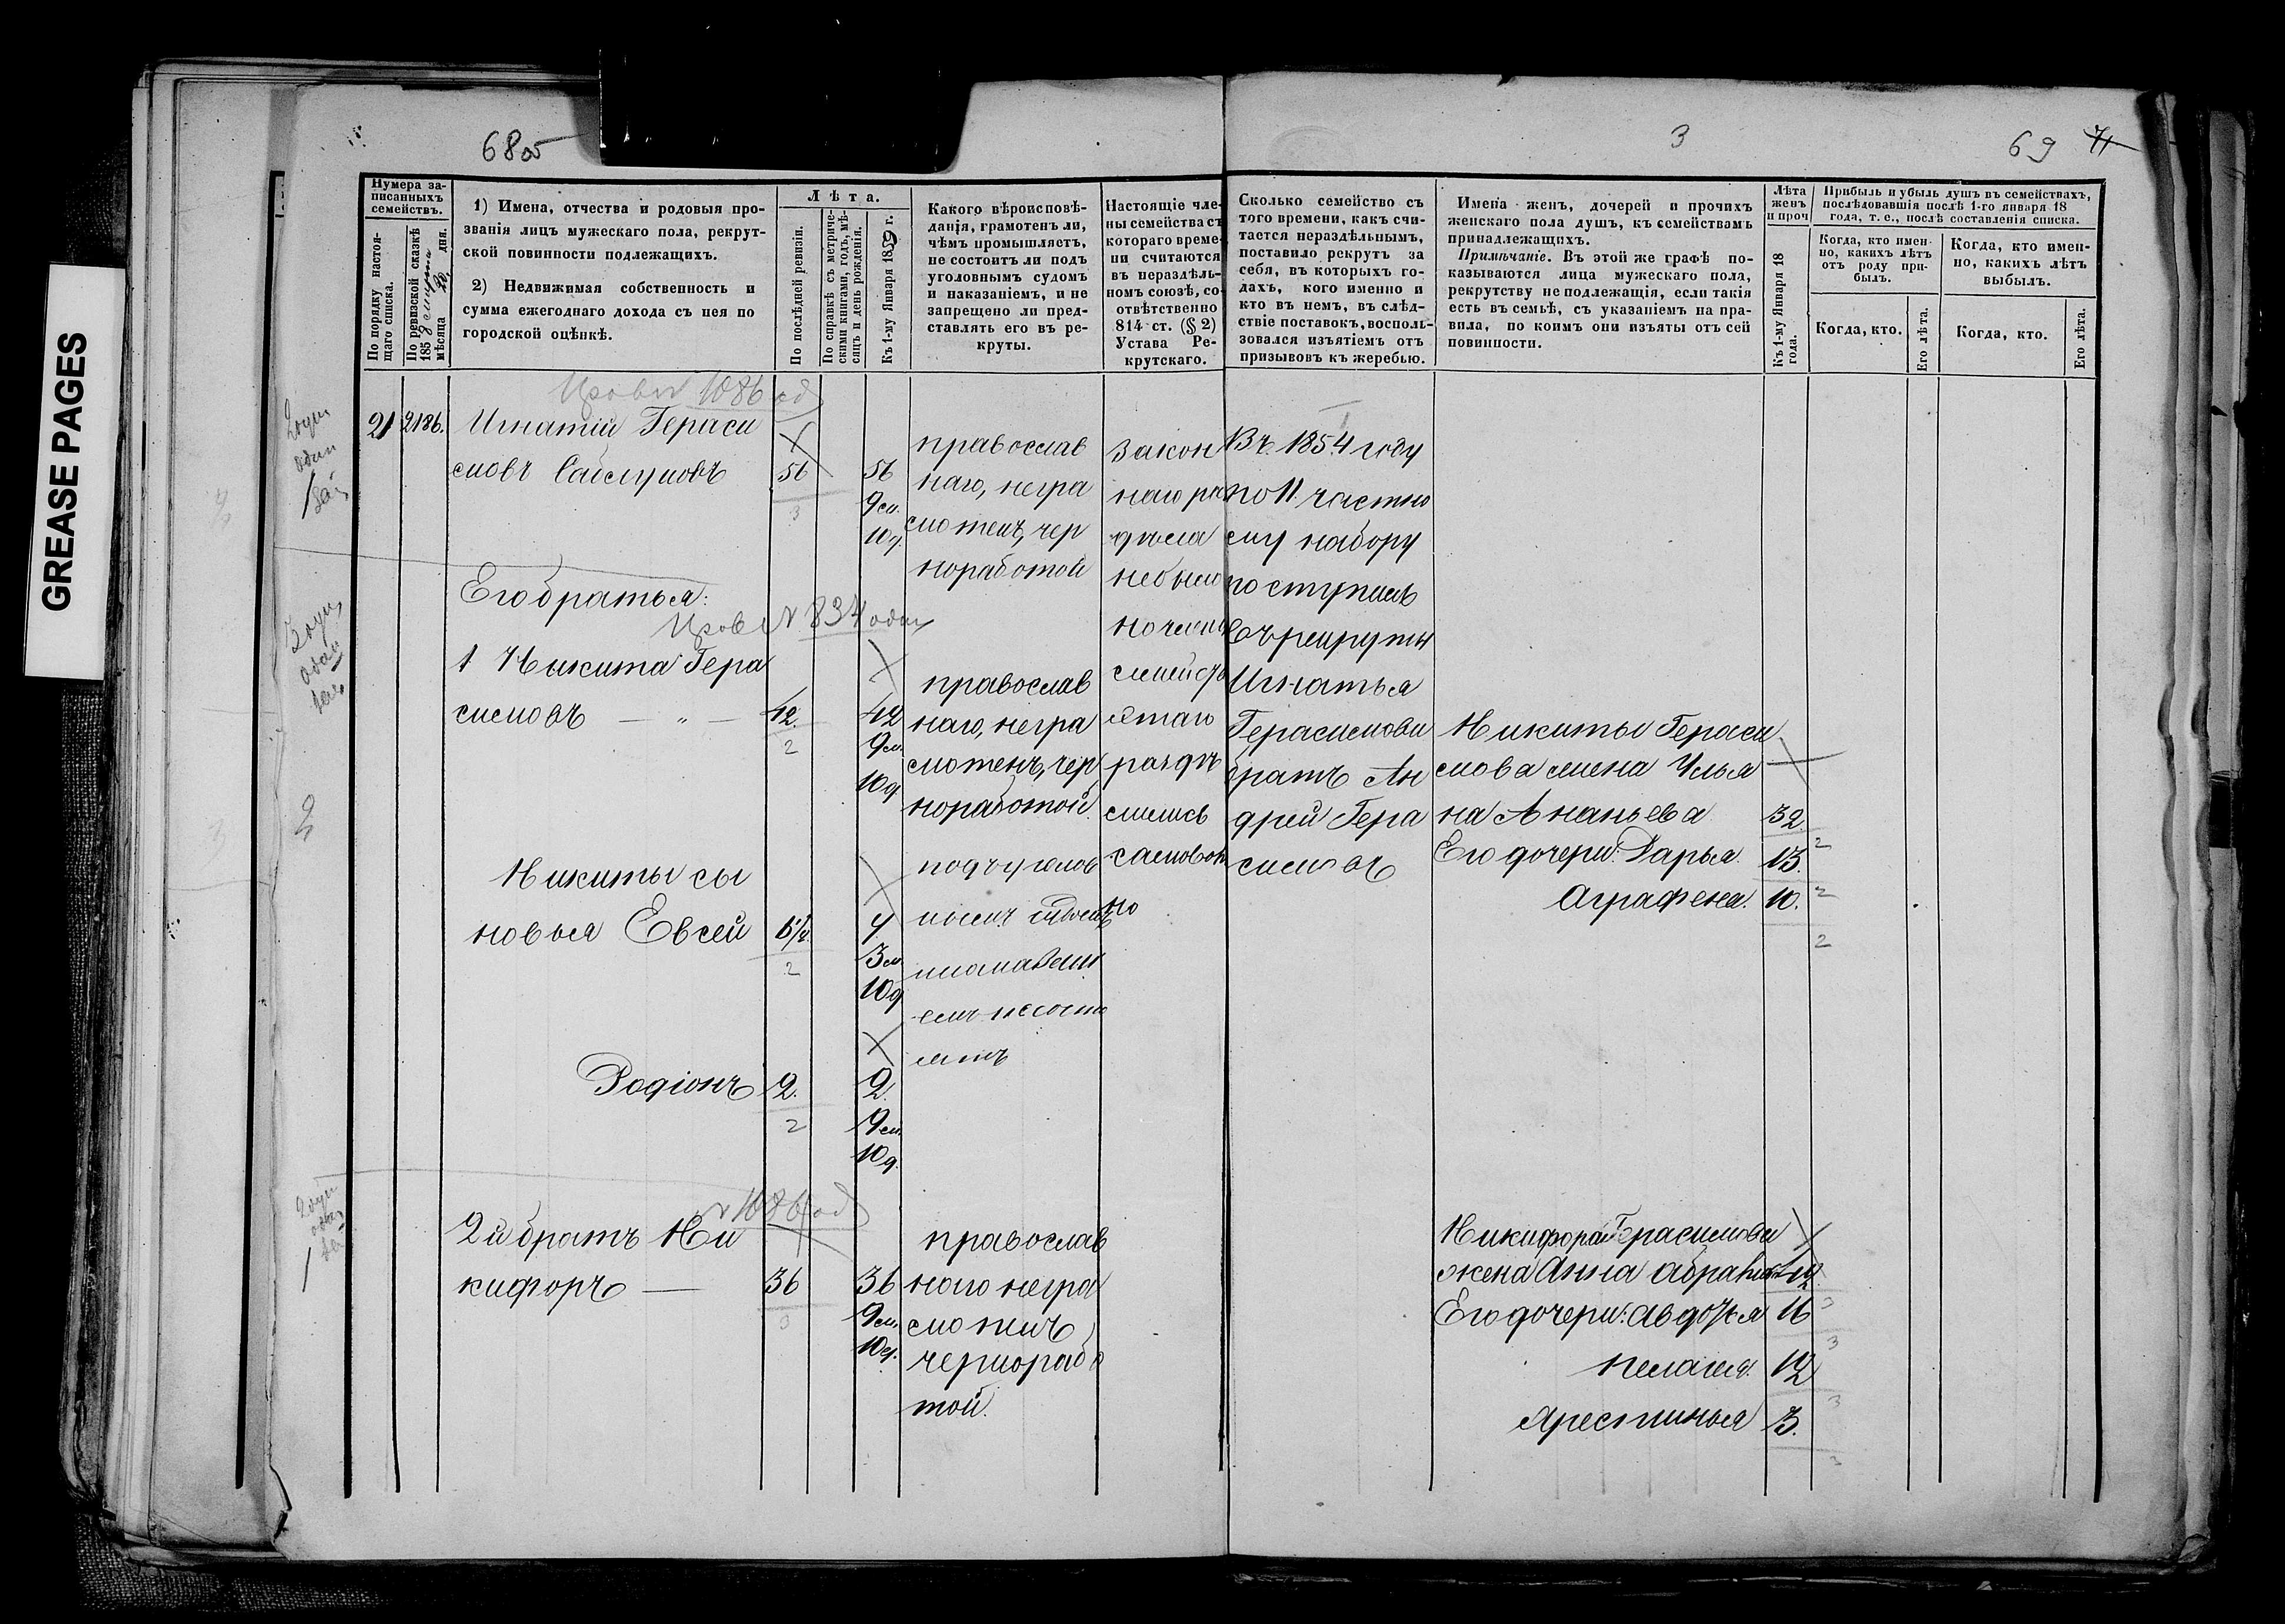 GREASE PAGES
68 об
3
69 71
Нумера за-
писанныхъ
семействъ.
По порядку настоя-
щаго списка.
По ревизской сказкѣ
185
мѣсяца
дня.
1) Имена, отчества и родовыя про-
званія лицъ мужескаго пола, рекрут-
ской повинности подлежащихъ.
2) Недвижимая собственность и
сумма ежегоднаго дохода съ нея по
городской оцѣнкѣ.
Лѣта.
По послѣдней ревизіи.
По справкѣ съ метриче-
скими книгами, годъ, мѣ-
сяцъ и день рожденія.
Къ 1-му Января 1859 г.
Какого вѣроисповѣ-
данія, грамотенъ ли,
чѣмъ промышляетъ,
не состоитъ ли подъ
уголовнымъ судомъ
и наказаніемъ, и не
запрещено ли пред-
ставлять его въ ре-
круты.
Настоящіе чле-
ны семейства съ
котораго време-
ни считаются
въ нераздѣль-
номъ союзѣ, со-
отвѣтственно
814 ст. (§ 2)
Устава Ре-
крутскаго.
Сколько семейство съ
того времени, какъ счи-
тается нераздѣльнымъ,
поставило рекрутъ за
себя, въ которыхъ го-
дахъ, кого именно и
кто въ немъ, въ слѣд-
ствіе поставокъ, восполь-
зовался изъятіемъ отъ
призывовъ къ жеребью.
Имена женъ, дочерей и прочихъ
женскаго пола душъ, къ семействамъ
принадлежащихъ.
Примѣчаніе. Въ этой же графѣ по-
казываются лица мужескаго пола,
рекрутству не подлежащія, если такія
есть въ семьѣ, съ указаніемъ на пра-
вила, по коимъ они изъяты отъ сей
повинности.
Лѣта
женъ
и проч
Къ 1-му Января 18
года.
Прибыль и убыль душъ въ семействахъ,
послѣдовавшія послѣ 1-го января 18
года, т. е., послѣ составленія списка.
Когда, кто имен-
но, какихъ лѣтъ
отъ роду при-
былъ.
Когда, кто имен-
но, какихъ лѣтъ
выбылъ.
Когда, кто.
Его лѣта.
Когда, кто.
Его лѣта.
1086
21 2186. Игнатій Гераси
мовъ
56
3
56
9 м.
10 д.
православ
наго, негра
мотенъ, чер
ноработой
Закон
наго раз
дѣла
небыло
семейст
раздѣ
лились
Въ 1854 году
по 11 частно
му набору
поступилъ
въ рекруты
Игнатья
Герасимова
братъ Ан
дрей Гера
симовъ
Его братья:
№ 834
1 Никита Гера
симовъ — " —
42.
2
42
9 м.
10 д
православ
наго, негра
мотенъ, чер
ноработой.
Никиты Гераси
мова жена Улья
на Ананьева
32
Его дочери: Дарья.
13.
Аграфена.
10.
2
Никиты сы
новья Евсей
2
4
3 м.
10 д
Родіонъ
2.
2
2.
9 м.
10 д.
№ 1086
2й братъ Ни
кифоръ —
36
3
36
9 м.
10 д.
православ
ного негра
мотенъ
чернорабо
той.
Никифора Герасимова
жена Анна
Его дочери: Авдотья
16
3
Пелагея.
12
3
3.
3